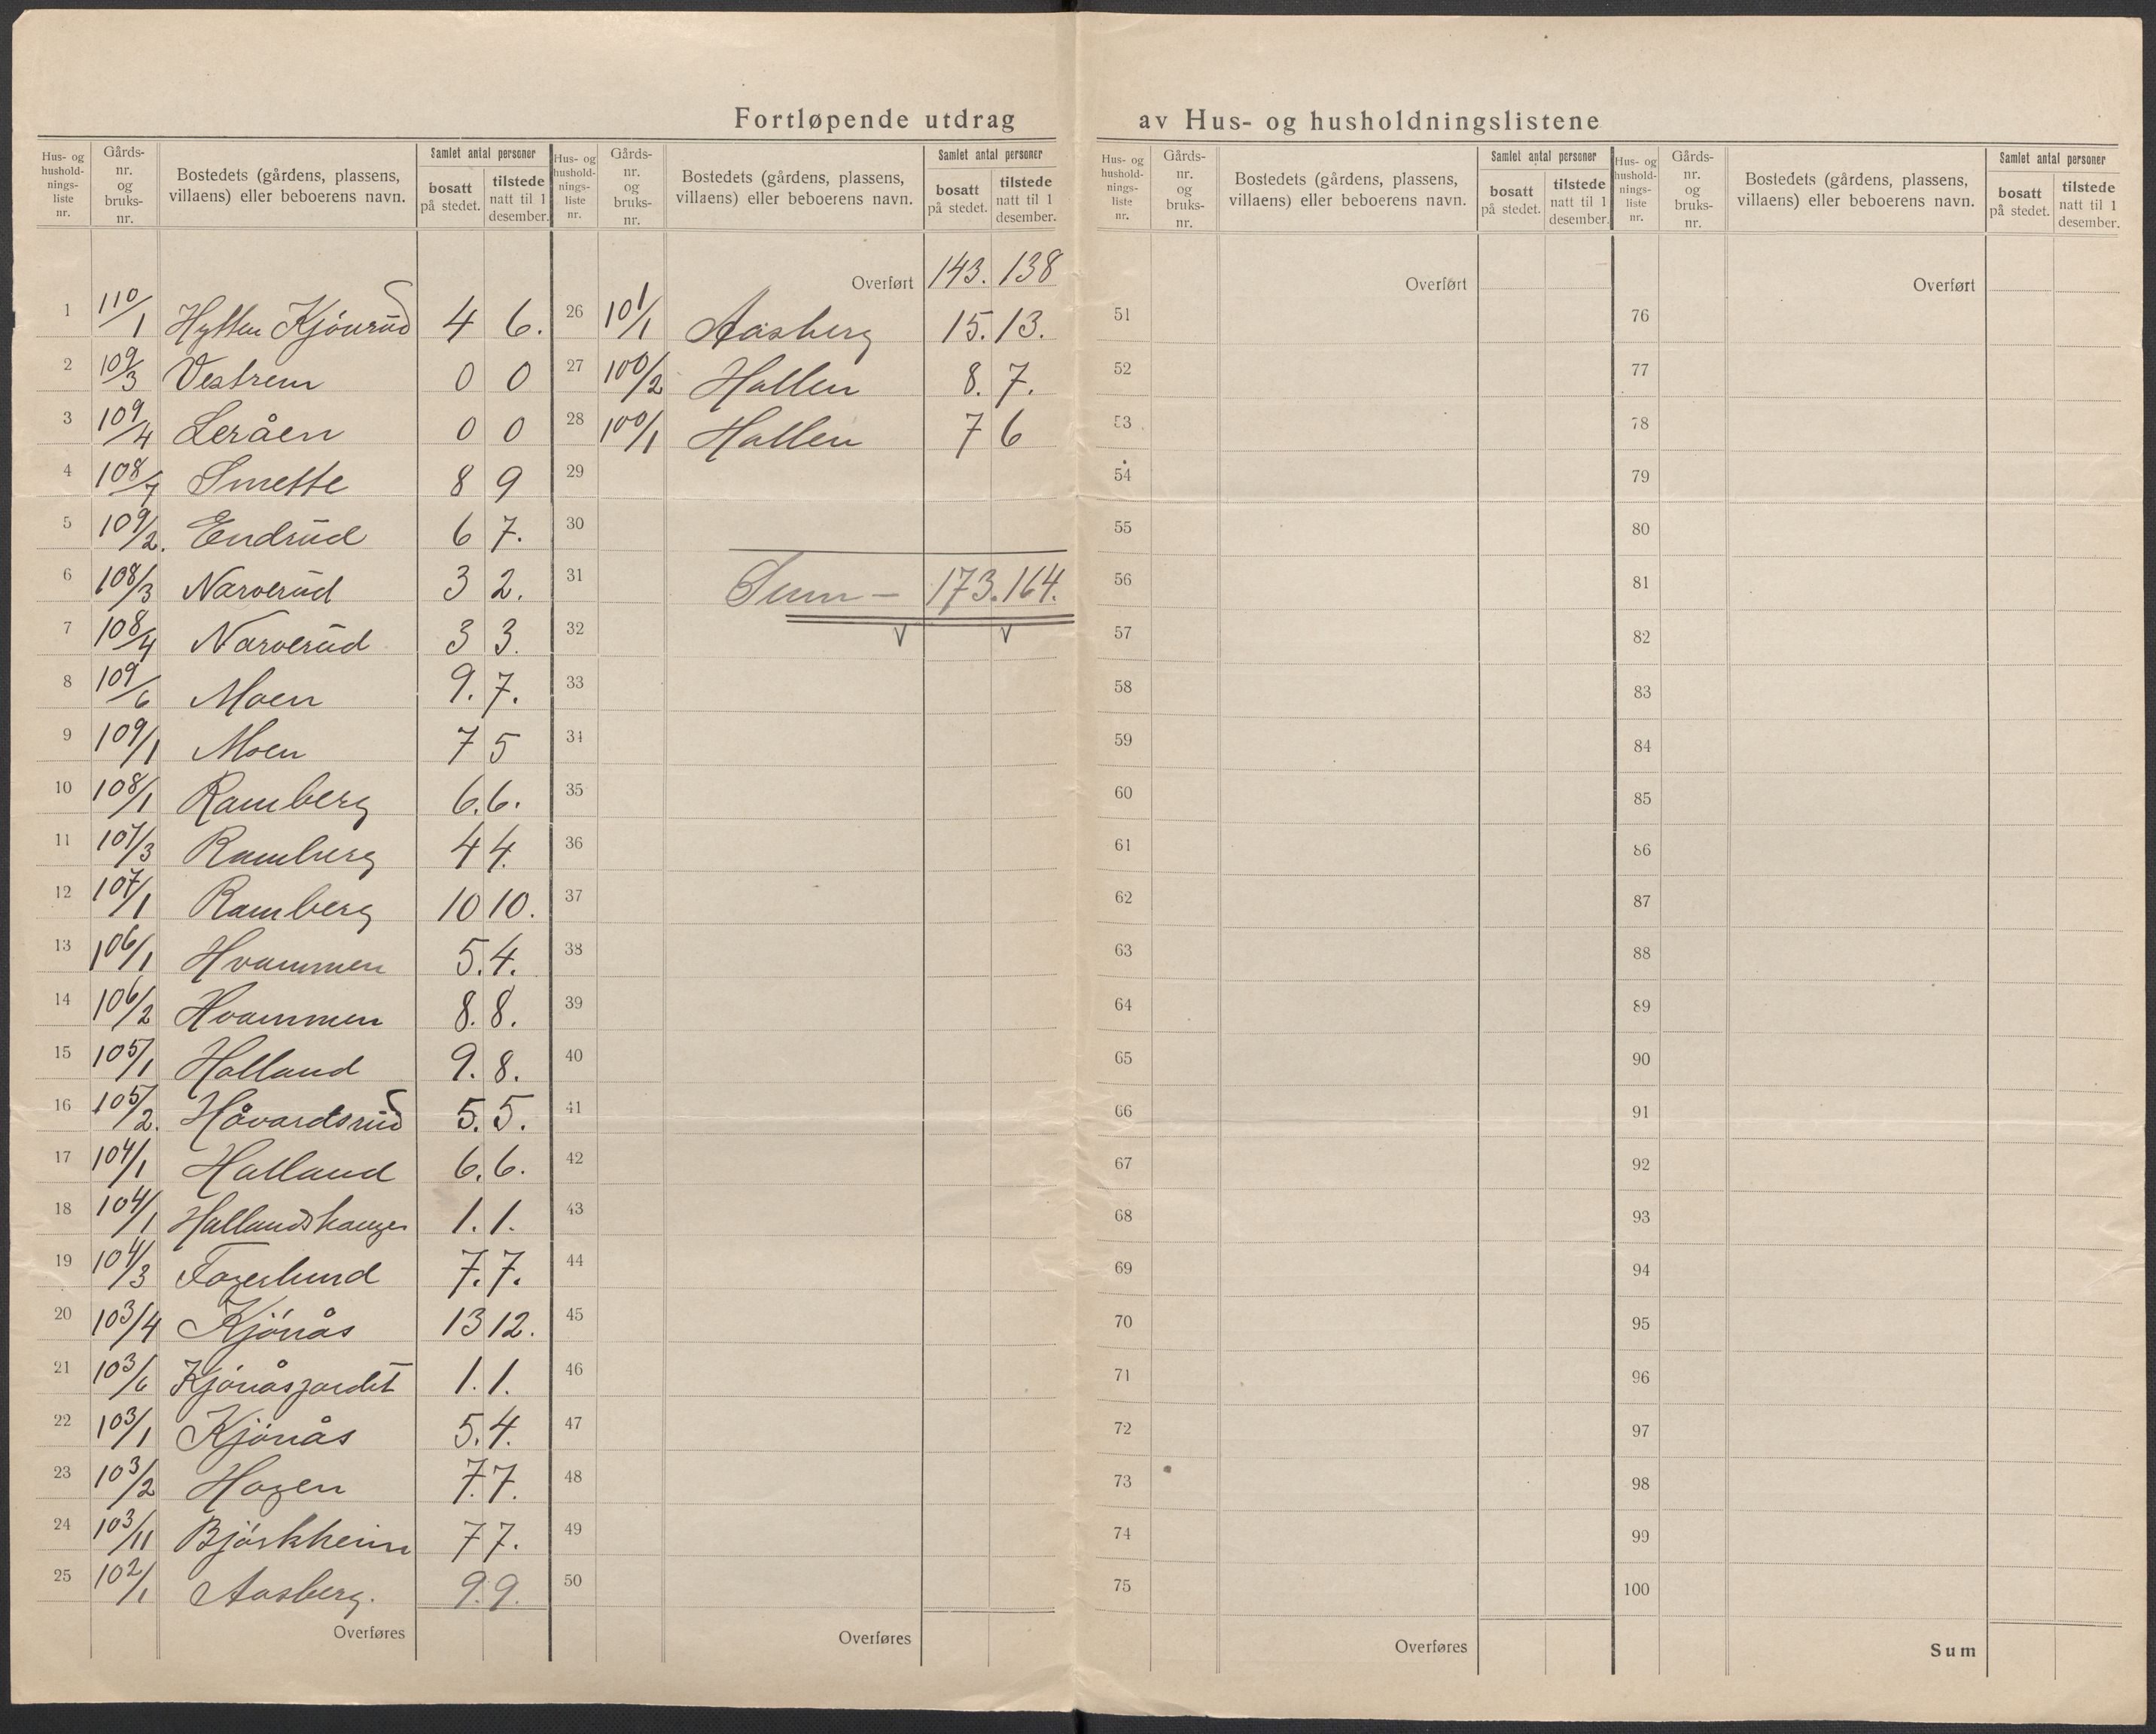 Fortløpende utdrag av Hus- og husholdningslistene
Hus- og hushold-nings-liste nr. | Gårds-nr. og bruks-nr. | Bostedets (gårdens, plassens, villaens) eller beboerens navn. | Samlet antal personer | bosatt på stedet. | tilstede natt til 1 desember.
1 110/1 Hytten Kjönrud 4 6.
2 109/3 Vestrem 0 0
3 109/4 Leråen 0 0
4 108/7 Smette 8 9
5 109/2. Endrud 6 7.
6 108/3 Narverud 3 2.
7 108/4 Narverud 3 3.
8 109/6 Moen 9. 7.
9 109/1 Moen 7 5
10 108/1 Ramberg 6. 6.
11 107/3 Ramberg 4 4.
12 107/1 Ramberg 10 10.
13 106/1 Hvammen 5. 4.
14 106/2 Hvammen 8. 8.
15 105/1 Halland 9. 8.
16 105/2. Håvardsrud 5. 5.
17 104/1 Halland 6. 6.
18 104/1 Hallandshaugen 1. 1.
19 104/3 Fagerlund 7. 7.
20 103/4 Kjönås 13 12.
21 103/6 Kjönåsjordet 1. 1.
22 103/1 Kjönås 5. 4.
23 103/2 Hagen 7. 7.
24 103/11 Björkheim 7 7.
25 102/1 Aasberg. 9. 9.
Overføres
Hus- og hushold-nings-liste nr. | Gårds-nr. og bruks-nr. | Bostedets (gårdens, plassens, villaens) eller beboerens navn. | Samlet antal personer | bosatt på stedet. | tilstede natt til 1 desember.
Overført 143. 138
26 101/1 Aasberg 15. 13.
27 100/2 Hallen 8. 7.
28 100/1 Hallen 7 6
29
30
31 Sum - 173. 164.
32
33
34
35
36
37
38
39
40
41
42
43
44
45
46
47
48
49
50
Overføres
Hus- og hushold-nings-liste nr. | Gårds-nr. og bruks-nr. | Bostedets (gårdens, plassens, villaens) eller beboerens navn. | Samlet antal personer | bosatt på stedet. | tilstede natt til 1 desember.
Overført
51
52
53
54
55
56
57
58
59
60
61
62
63
64
65
66
67
68
69
70
71
72
73
74
75
Overføres
Hus- og hushold-nings-liste nr. | Gårds-nr. og bruks-nr. | Bostedets (gårdens, plassens, villaens) eller beboerens navn. | Samlet antal personer | bosatt på stedet. | tilstede natt til 1 desember.
Overført
76
77
78
79
80
81
82
83
84
85
86
87
88
89
90
91
92
93
94
95
96
97
98
99
100
Sum